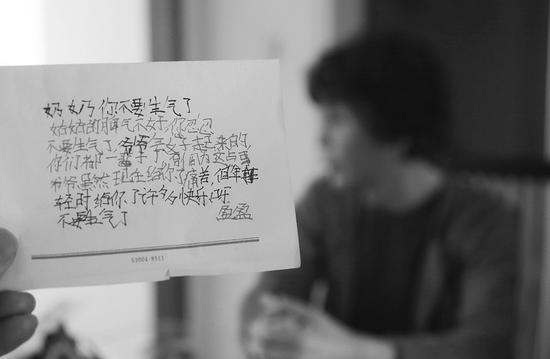 奶奶你不要生气了
姑姑的脾气不好你
不要生气了 会好起来的
你们一辈子了 因为这与
爷爷虽然现在给你了痛苦,但年
轻时给你了许多快乐呀
不要生气了 盈盈
63004·8511